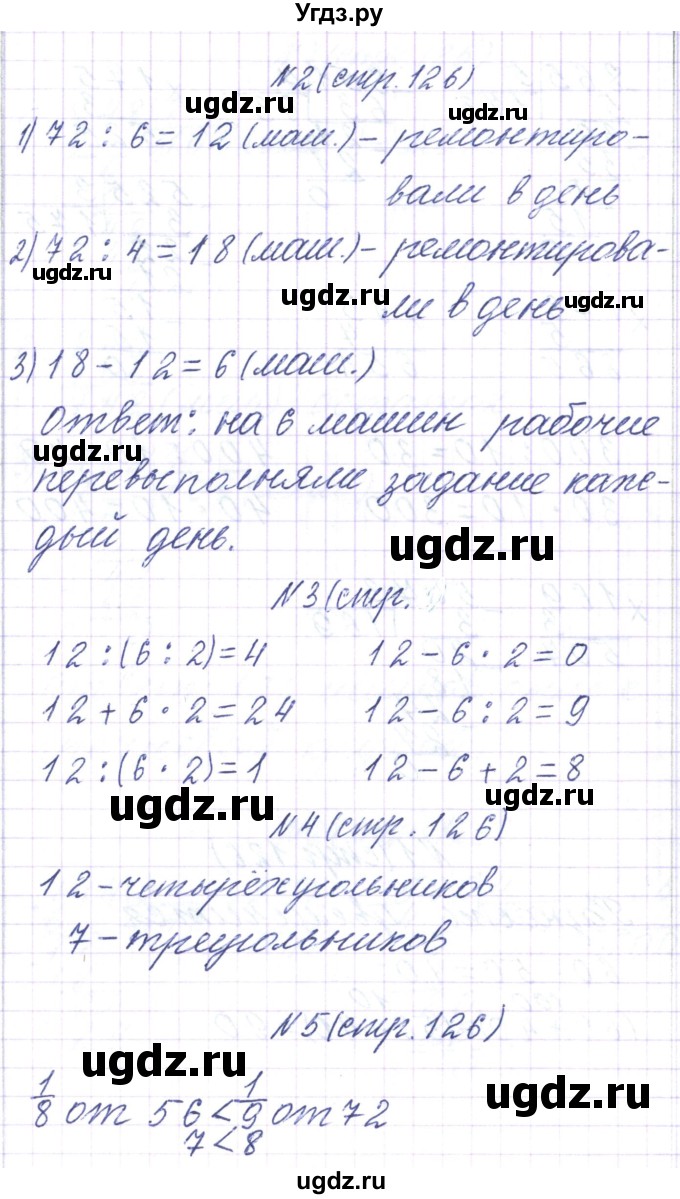 Угдз.ру
N2(стр.126)
ugdz.ru
ugdz.ru
1) 72 : 6 = 12 (маш.) - ремонтиро-
вали в день
2) 72 : 4 = 18 (маш.) - ремонтирова-
ugdz.ru
ugdz.ru
ugdz.ru
ли в день
3) 18 - 12 = 6 (маш.)
Ответ: на 6 машин рабочие
ugdz.ru
перевыполняли задание каж-
дый день.
ugdz.ru
N3(стр.
12 : (6 : 2) = 4 12 - 6 · 2 = 0
12 + 6 · 2 = 24 12 - 6 : 2 = 9
12 : (6 · 2) = 1 12 - 6 + 2 = 8
ugdz.ru
ugdz.ru
N4(стр.126)
12 - четырёхугольников
7 - треугольников
N5(стр.126)
ugdz.ru
1/8 от 56 < 1/9 от 72
ugdz.ru
7 < 8
ugdz.ru